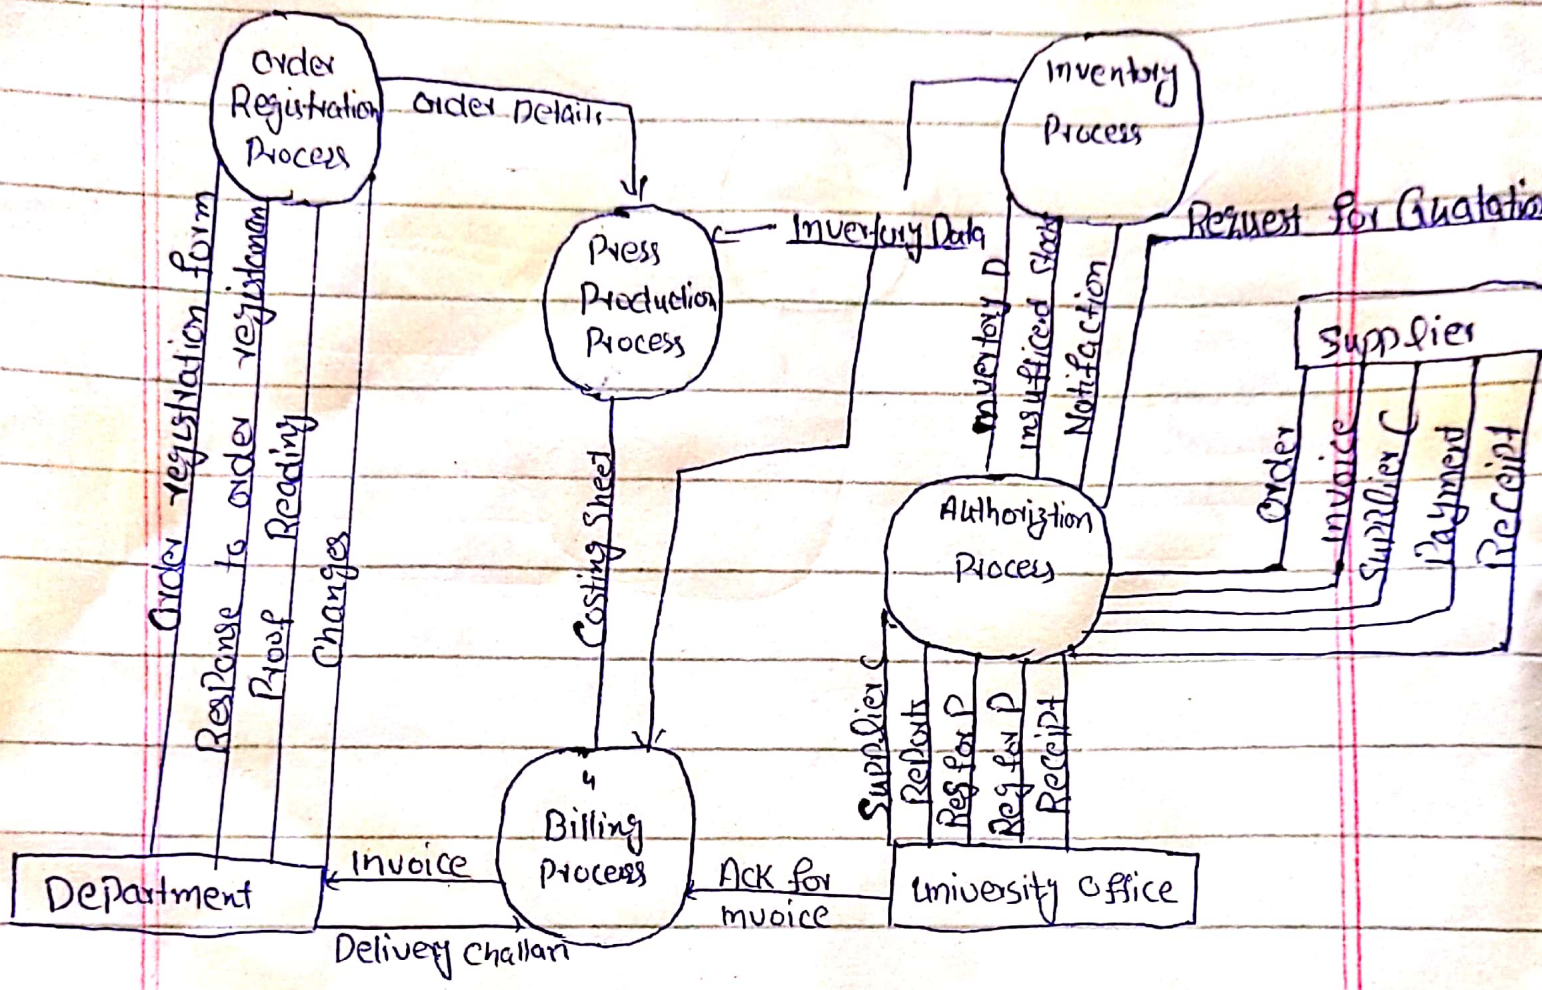 Order
Registration
Process
Order Details
Inventory
Process
Request for Quatation
Press
Production
Process
Inventory Data
Supplier
Order registration form
Response to order registanon
Proof Reading
Changes
Costing Sheet
Inventory D
Insufficed Stock
Notifaction
Order
Invoice
Supplier C
Payment
Receipt
Authoriztion
Process
Supplier C
Reports
Reg for P
Reg for D
Receipt
4
Billing
Process
Department
Invoice
Delivery Challan
Ack for
Invoice
University Office